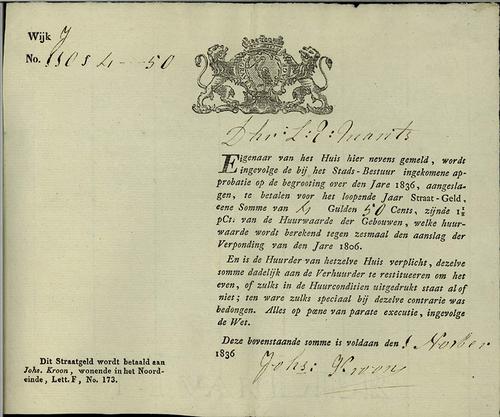 Wijk J
No. 1105 4 - - 50
Dhr: L: J: Mants
Eigenaar van het Huis hier nevens gemeld, wordt
ingevolge de bij het Stads-Bestuur ingekomene ap-
probatie op de begrooting over den Jare 1836, aangesla-
gen, te betalen voor het loopende Jaar Straat-Geld,
eene Somme van 4 Gulden 50 Cents, zijnde 1½
pCt. van de Huurwaarde der Gebouwen, welke huur-
waarde wordt berekend tegen zesmaal den aanslag der
Verponding van den Jare 1806.
En is de Huurder van hetzelve Huis verplicht, dezelve
somme dadelijk aan de Verhuurder te restitueeren om het
even, of zulks in de Huurconditien uitgedrukt staat al of
niet; ten ware zulks speciaal bij dezelve contrarie was
bedongen. Alles op pœne van parate executie, ingevolge
de Wet.
Deze bovenstaande somme is voldaan den Novber
1836
Johs: Kroon
Dit Straatgeld wordt betaald aan
Johs. Kroon, wonende in het Noord-
einde, Lett. F, No. 173.